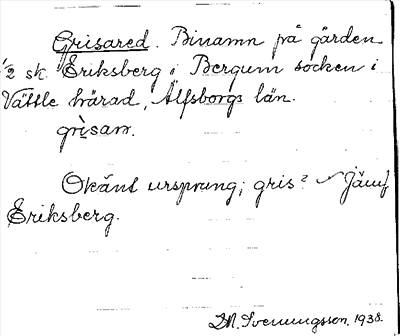 Grisared. Binamn på gården
1/2 sk. Eriksberg i Bergum socken i
Vättle härad, Älfsborgs län.
grisarɘ.
Okänt ursprung; gris? Jämf
Eriksberg.
D.N. Svenningsson, 1938.